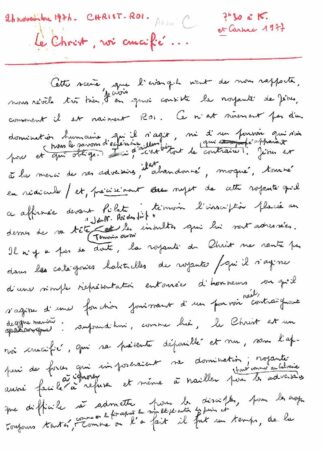 24 novembre 1974. CHRIST-ROI. C 7h30 à 15.
et Carême 1977
Le Christ, roi crucifié...
Cette scène, que l'évangile vient de nous rapporter,
nous révèle très bien, en quoi consiste la royauté de Jésus,
comment il est vraiment ROI. Ce n'est sûrement pas d'une
domination humaine qu'il s'agit, ni d'un pouvoir qui
nous le savons d'expérience
et qui oblige. c'est tout le contraire ! Jésus est
à la merci de ses adversaires, abandonné, moqué, tourné
en ridicule / et, précisément au sujet de cette royauté qu'il
a affirmée devant Pilate : témoin l'inscription placée au
dessus de sa tête les insultes qui lui sont adressées.
Il n'y a pas de doute, la royauté du Christ ne rentre pas
dans les catégories habituelles de royautés / qu'il s'agisse
d'une simple représentation entourée d'honneurs, ou qu'il
s'agisse d'une fonction jouissant d'un pouvoir contraignant
aujourd'hui, comme hier, le Christ est un
roi crucifié, qui se présente dépouillé et nu, sans l'ap-
pui de forces qui imposeraient sa domination ; royauté
aussi facile à refuser et même à railler pour les adversaires
que difficile à admettre pour les disciples, pour les
toujours tentés, comme on l'a fait il fut un temps, de la